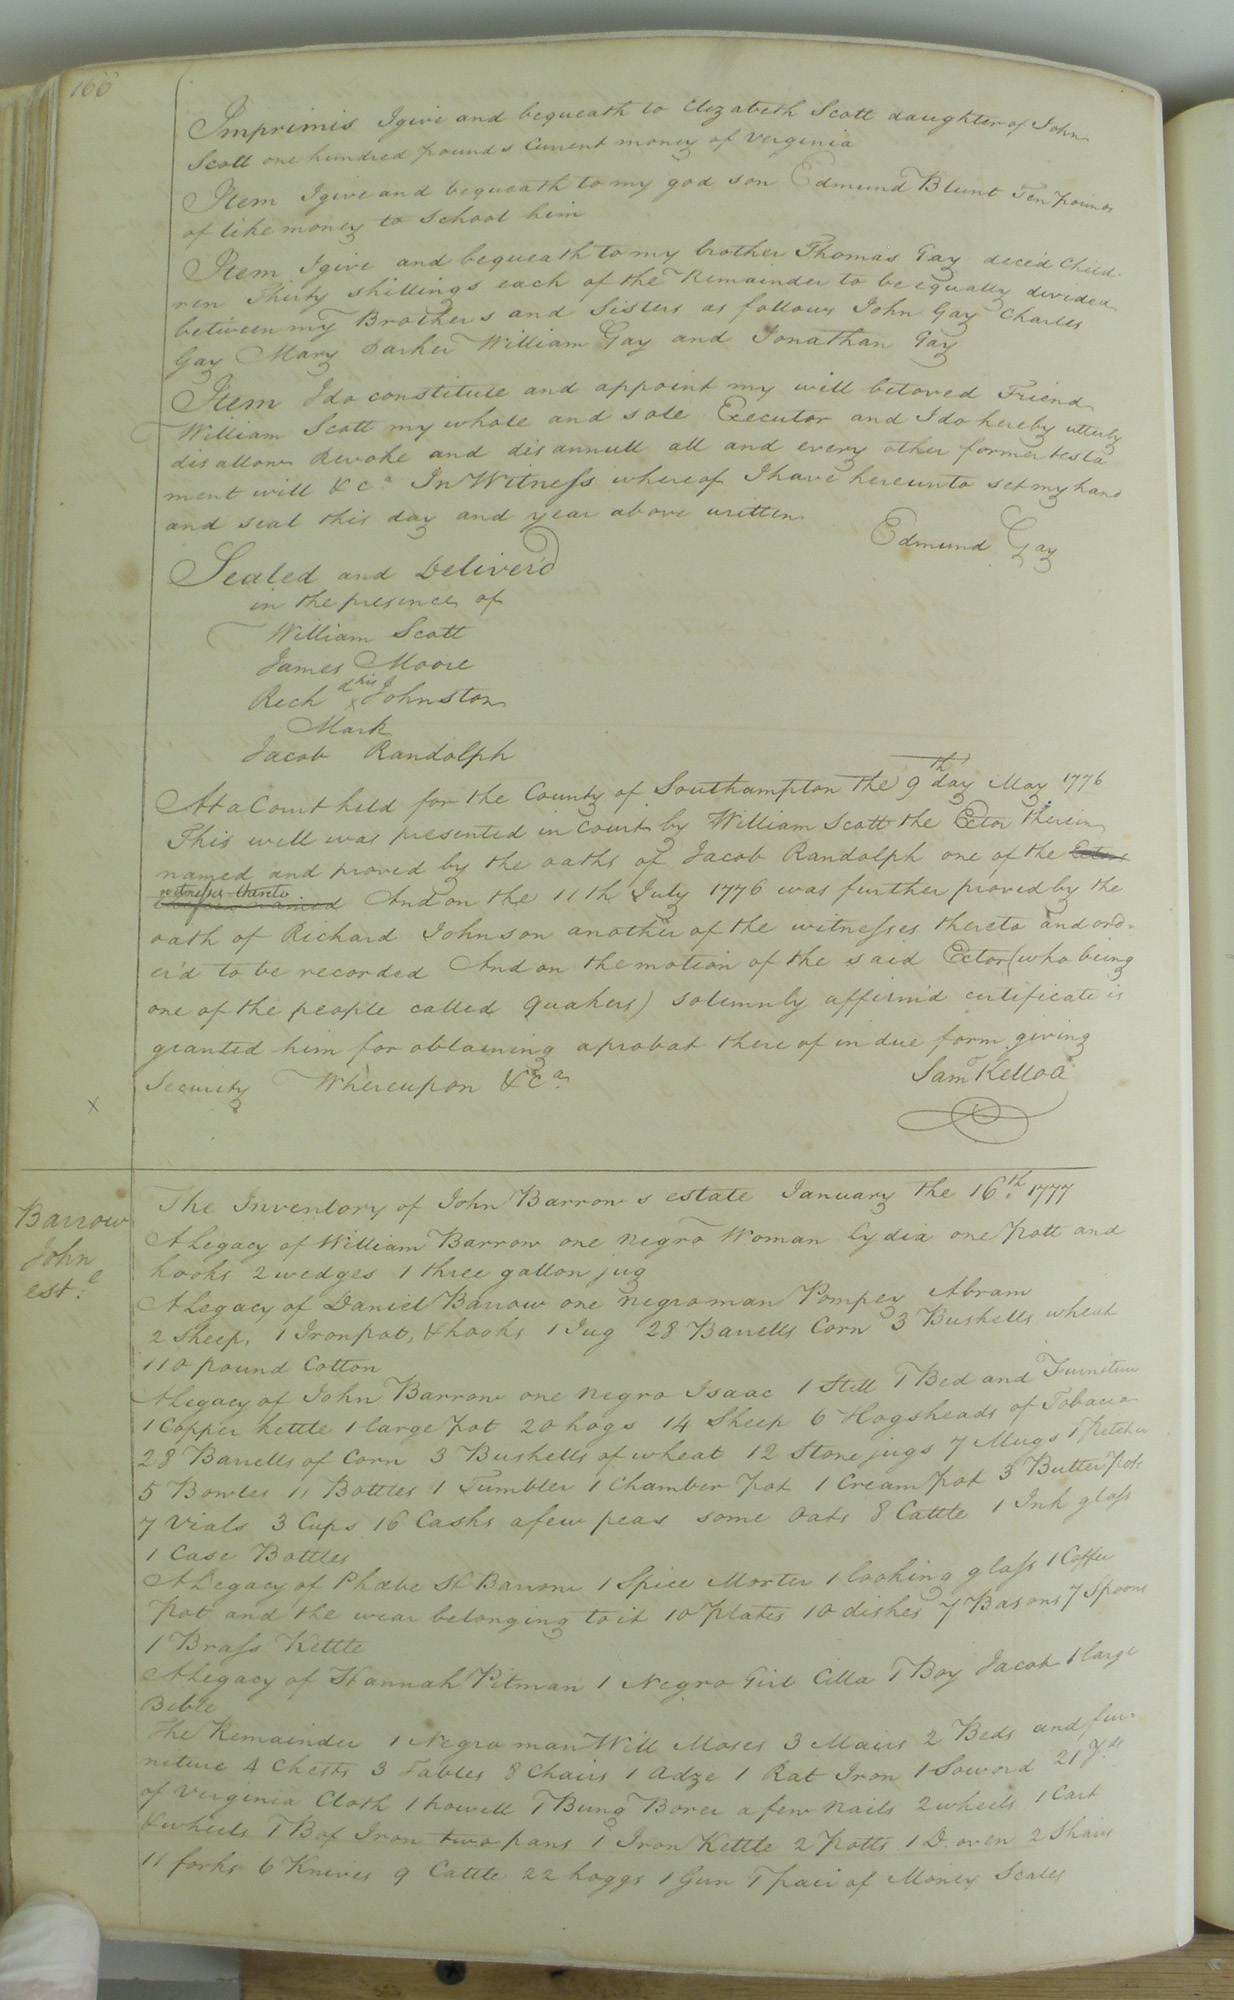 166
Imprimis I give and bequeath to Elizabeth Scott daughter of John
Scott one hundred pounds Current money of Verginia
Item I give and bequeath to my god son Edmund Blunt Ten pounds
of like money to School him
Item I give and bequeath to my brother Thomas Gay deced Child-
ren Thirty shillings each of the Remainder to be equally divided
between my Brothers and Sisters as follows John Gay Charles
Gay Mary Parker William Gay and Jonathan Gay
Item I do constitute and appoint my will beloved Friend
William Scott my whole and sole Executor and I do hereby utterly
disallow Revoke and disannull all and every other former testa
ment will &ca In Witness whereof I have hereunto set my hand
and seal this day and year above written
Edmund Gay
Sealed and Deliver'd
in the presence of
William Scott
James Moore
Richd his x Johnston
Mark
Jacob Randolph
At a Court held for the County of Southampton the 9th day May 1776
This will was presented in Court by William Scott the Ector therein
named and proved by the oaths of Jacob Randolph one of the
witnesses thereto And on the 11th July 1776 was further proved by the
oath of Richard Johnson another of the witnesses thereto and ord-
er'd to be recorded And on the motion of the said Ector (who being
one of the people called Quakers) solemnly affirm'd certificate is
granted him for obtaining a probat there of in due form giving
Security Whereupon &ca
Sam Kello
x
Barrow
John
este
The Inventory of John Barrow s estate January the 16th 1777
A Legacy of William Barrow one negro Woman Lydia one Pott and
hooks 2 wedges 1 three gallon jug
A Legacy of Daniel Barrow one negroman Pompey Abram
2 Sheep, 1 Ironpot, & hooks 1 Jug 28 Barrells Corn 3 Bushells wheat
110 pound Cotton
A Legacy of John Barrow one negro Isaac 1 Still 1 Bed and Furniture
1 Copper kettle 1 large Pot 20 hogs 14 Sheep 6 Hogsheads of Tobacco
28 Barrells of Corn 3 Bushells of wheat 12 Stone jugs 7 Mugs 1 Pitcher
5 Bowles 11 Bottles 1 Tumbler 1 Chamber Pot 1 Cream Pot 3 Butter Pots
7 Vials 3 Cups 16 Casks a few peas some Oats 8 Cattle 1 Ink glass
1 Case Bottles
A Legacy of Phœbe St Barrow 1 Spice Morter 1 looking glass 1 Coffee
Pot and the wear belonging to it 10 Plates 10 dishes 7 Basons 7 Spoons
1 Brass Kettle
A Legacy of Hannah Pitman 1 Negro Girl Cilla 1 Boy Jacob 1 large
Bible
The Remainder 1 Negro man Will Moses 3 Mairs 2 Beds and fur-
niture 4 Chests 3 Tables 8 Chairs 1 Adze 1 Rat Iron 1 Soword 21 Yds
of Verginia Cloth 1 howell 1 Bung Borer a few nails 2 wheels 1 Cart
& wheels 1 Box Iron two pans 1 Iron Kettle 2 Potts 1 D. oven 2 Shairs
11 forks 6 Knives 9 Cattle 22 hoggs 1 Gun 1 pair of Money Scales